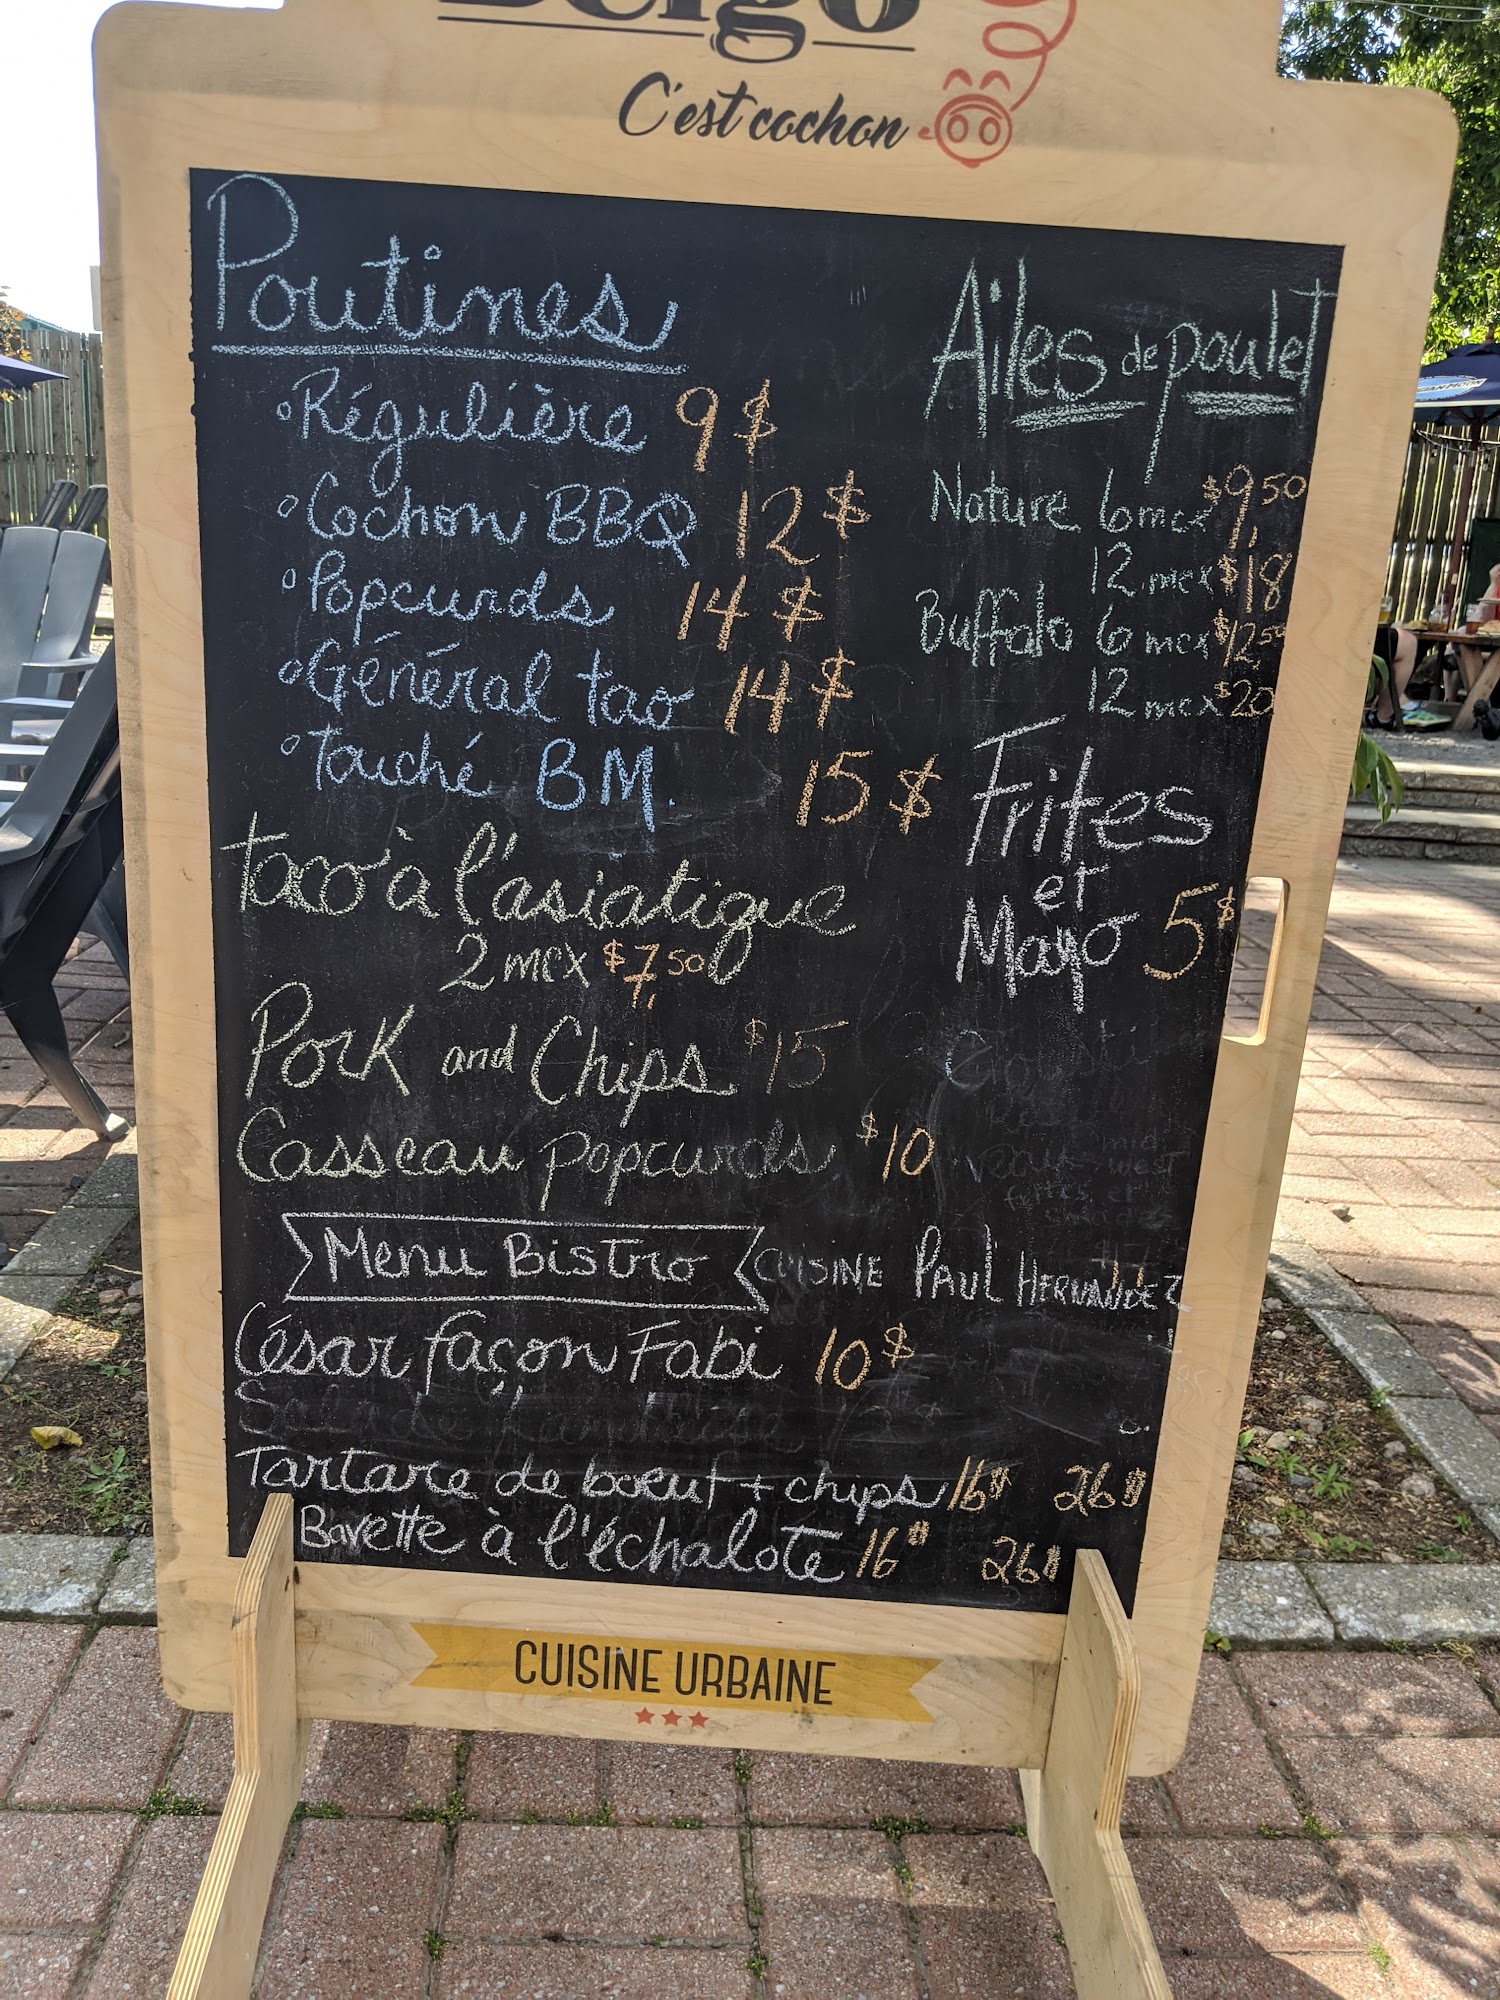 C'est cochon
Poutines
Régulière 9$
Cochon BBQ 12$
Popcurds 14$
Général tao 14$
Touché BM. 15$
Taco à l'asiatique
2 mcx $7,50
Pork and Chips $15
Casseau popcurds $10
Ailes de poulet
Nature 6 mcx $9,50
12 mcx $18
Buffalo 6 mcx $12,50
12 mcx $20
Frites
et
Mayo 5$
Menu Bistro CUISINE PAUL HERNANDEZ
César façon Fabi 10$
Tartare de boeuf + chips 16$ 26$
Bavette à l'échalote 16$ 26$
CUISINE URBAINE